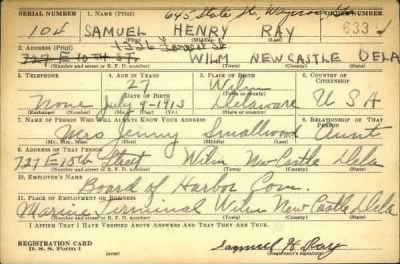 SERIAL NUMBER 1. NAME (Print) 645 State St,
104 SAMUEL HENRY RAY 633
(First) (Middle) (Last)
2. ADDRESS (Print) 1336 Lancaster St.
727 E 10TH ST. WILM NEWCASTLE DELA
(Number and street or R. F. D. number) (Town) (County) (State)
3. TELEPHONE 4. AGE IN YEARS 5. PLACE OF BIRTH 6. COUNTRY OF CITIZENSHIP
27 Wilm
DATE OF BIRTH
None July 9-1913 Delaware U S A
7. NAME OF PERSON WHO WILL ALWAYS KNOW YOUR ADDRESS 8. RELATIONSHIP OF THAT PERSON
Mrs Jenny Smallwood Aunt
(Mr., Mrs., Miss) (First) (Middle) (Last)
9. ADDRESS OF THAT PERSON
727 E 10th Street Wilm New Castle Dela
(Number and street or R. F. D. number) (Town) (County) (State)
10. EMPLOYER'S NAME
Board of Harbor Com.
11. PLACE OF EMPLOYMENT OR BUSINESS
Marine Terminal Wilm New Castle Dela
(Number and street or R. F. D. number) (Town) (County) (State)
I AFFIRM THAT I HAVE VERIFIED ABOVE ANSWERS AND THAT THEY ARE TRUE.
REGISTRATION CARD
D. S. S. Form 1 Samuel H Ray
(Registrant's signature)